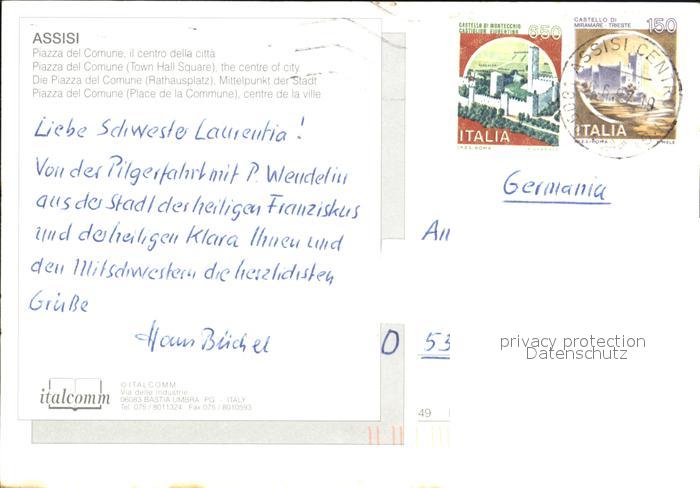 ASSISI
Piazza del Comune, il centro della città
Piazza del Comune (Town Hall Square), the centre of city
Die Piazza del Comune (Rathausplatz), Mittelpunkt der Stadt
Piazza del Comune (Place de la Commune), centre de la ville
Liebe Schwester Laurentia!
Von der Pilgerfahrt mit P. Wendelin
aus der Stadt der heiligen Franziskus
und der heiligen Klara Ihnen und
den Mitschwestern die herzlichsten
Grüße
Hans Büchel
italcomm
© ITALCOMM
Via delle Industrie
06083 BASTIA UMBRA PG - ITALY
Tel. 075 / 8011324 Fax 075 / 8010593
CASTELLO DI MONTECCHIO
CASTIGLION FIORENTINO
650
ITALIA
I.P.Z.S. - ROMA
CASTELLO DI
MIRAMARE - TRIESTE
150
ITALIA
I.P.Z.S. - ROMA
ASSISI CENTR
Germania
An
D 53
privacy protection
Datenschutz
49